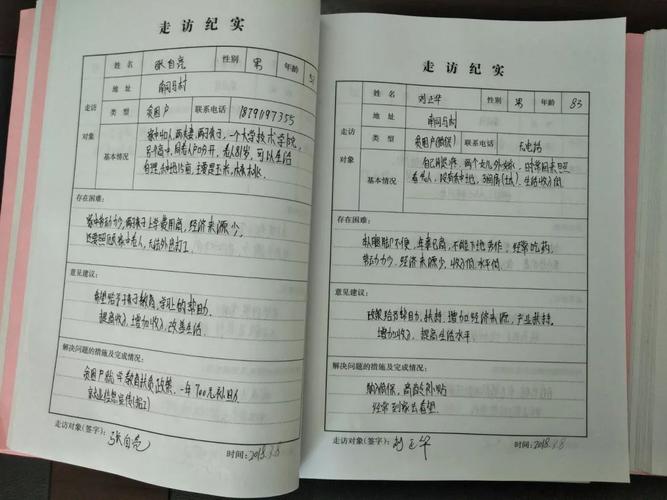 走访纪实
姓名 张自亮 性别 男 年龄
地址 南闫马村
走访对象
类型 贫困户 联系电话 18791197355
基本情况
家中4口人,两夫妻,两子女,一个大学技术学院,
另个高中,同老人户口分开,老人81岁,可以生活
自理
存在困难:
家中劳动力少,两孩子上学费用高,经济来源少,
还要照顾家中老人,无法外出打工
意见建议:
希望给予子女教育、学业上的帮助,
提高收入,增加收入,改善生活
解决问题的措施及完成情况:
贫困户 教育扶贫政策,一年700元补助
就业信息宣传
走访对象(签字): 张自亮 时间: 2018.3.8
走访纪实
姓名 刘正华 性别 男 年龄 83
地址 南闫马村
走访对象
类型 贫困户 联系电话 无电话
基本情况
自己居住,两个女儿外嫁,时常回来照
看老人,没有种土地,3间房(土),生活收入低
存在困难:
腿脚不便,年事已高,不能下地劳作,经常吃药
劳动力少,经济来源少,收入低水平低
意见建议:
政策给予帮助,扶持,增加经济来源,产业扶持,
增加收入,提高生活水平
解决问题的措施及完成情况:
纳入低保,高龄补贴
经常到家去看望
走访对象(签字): 刘正华 时间: 2018.3.8